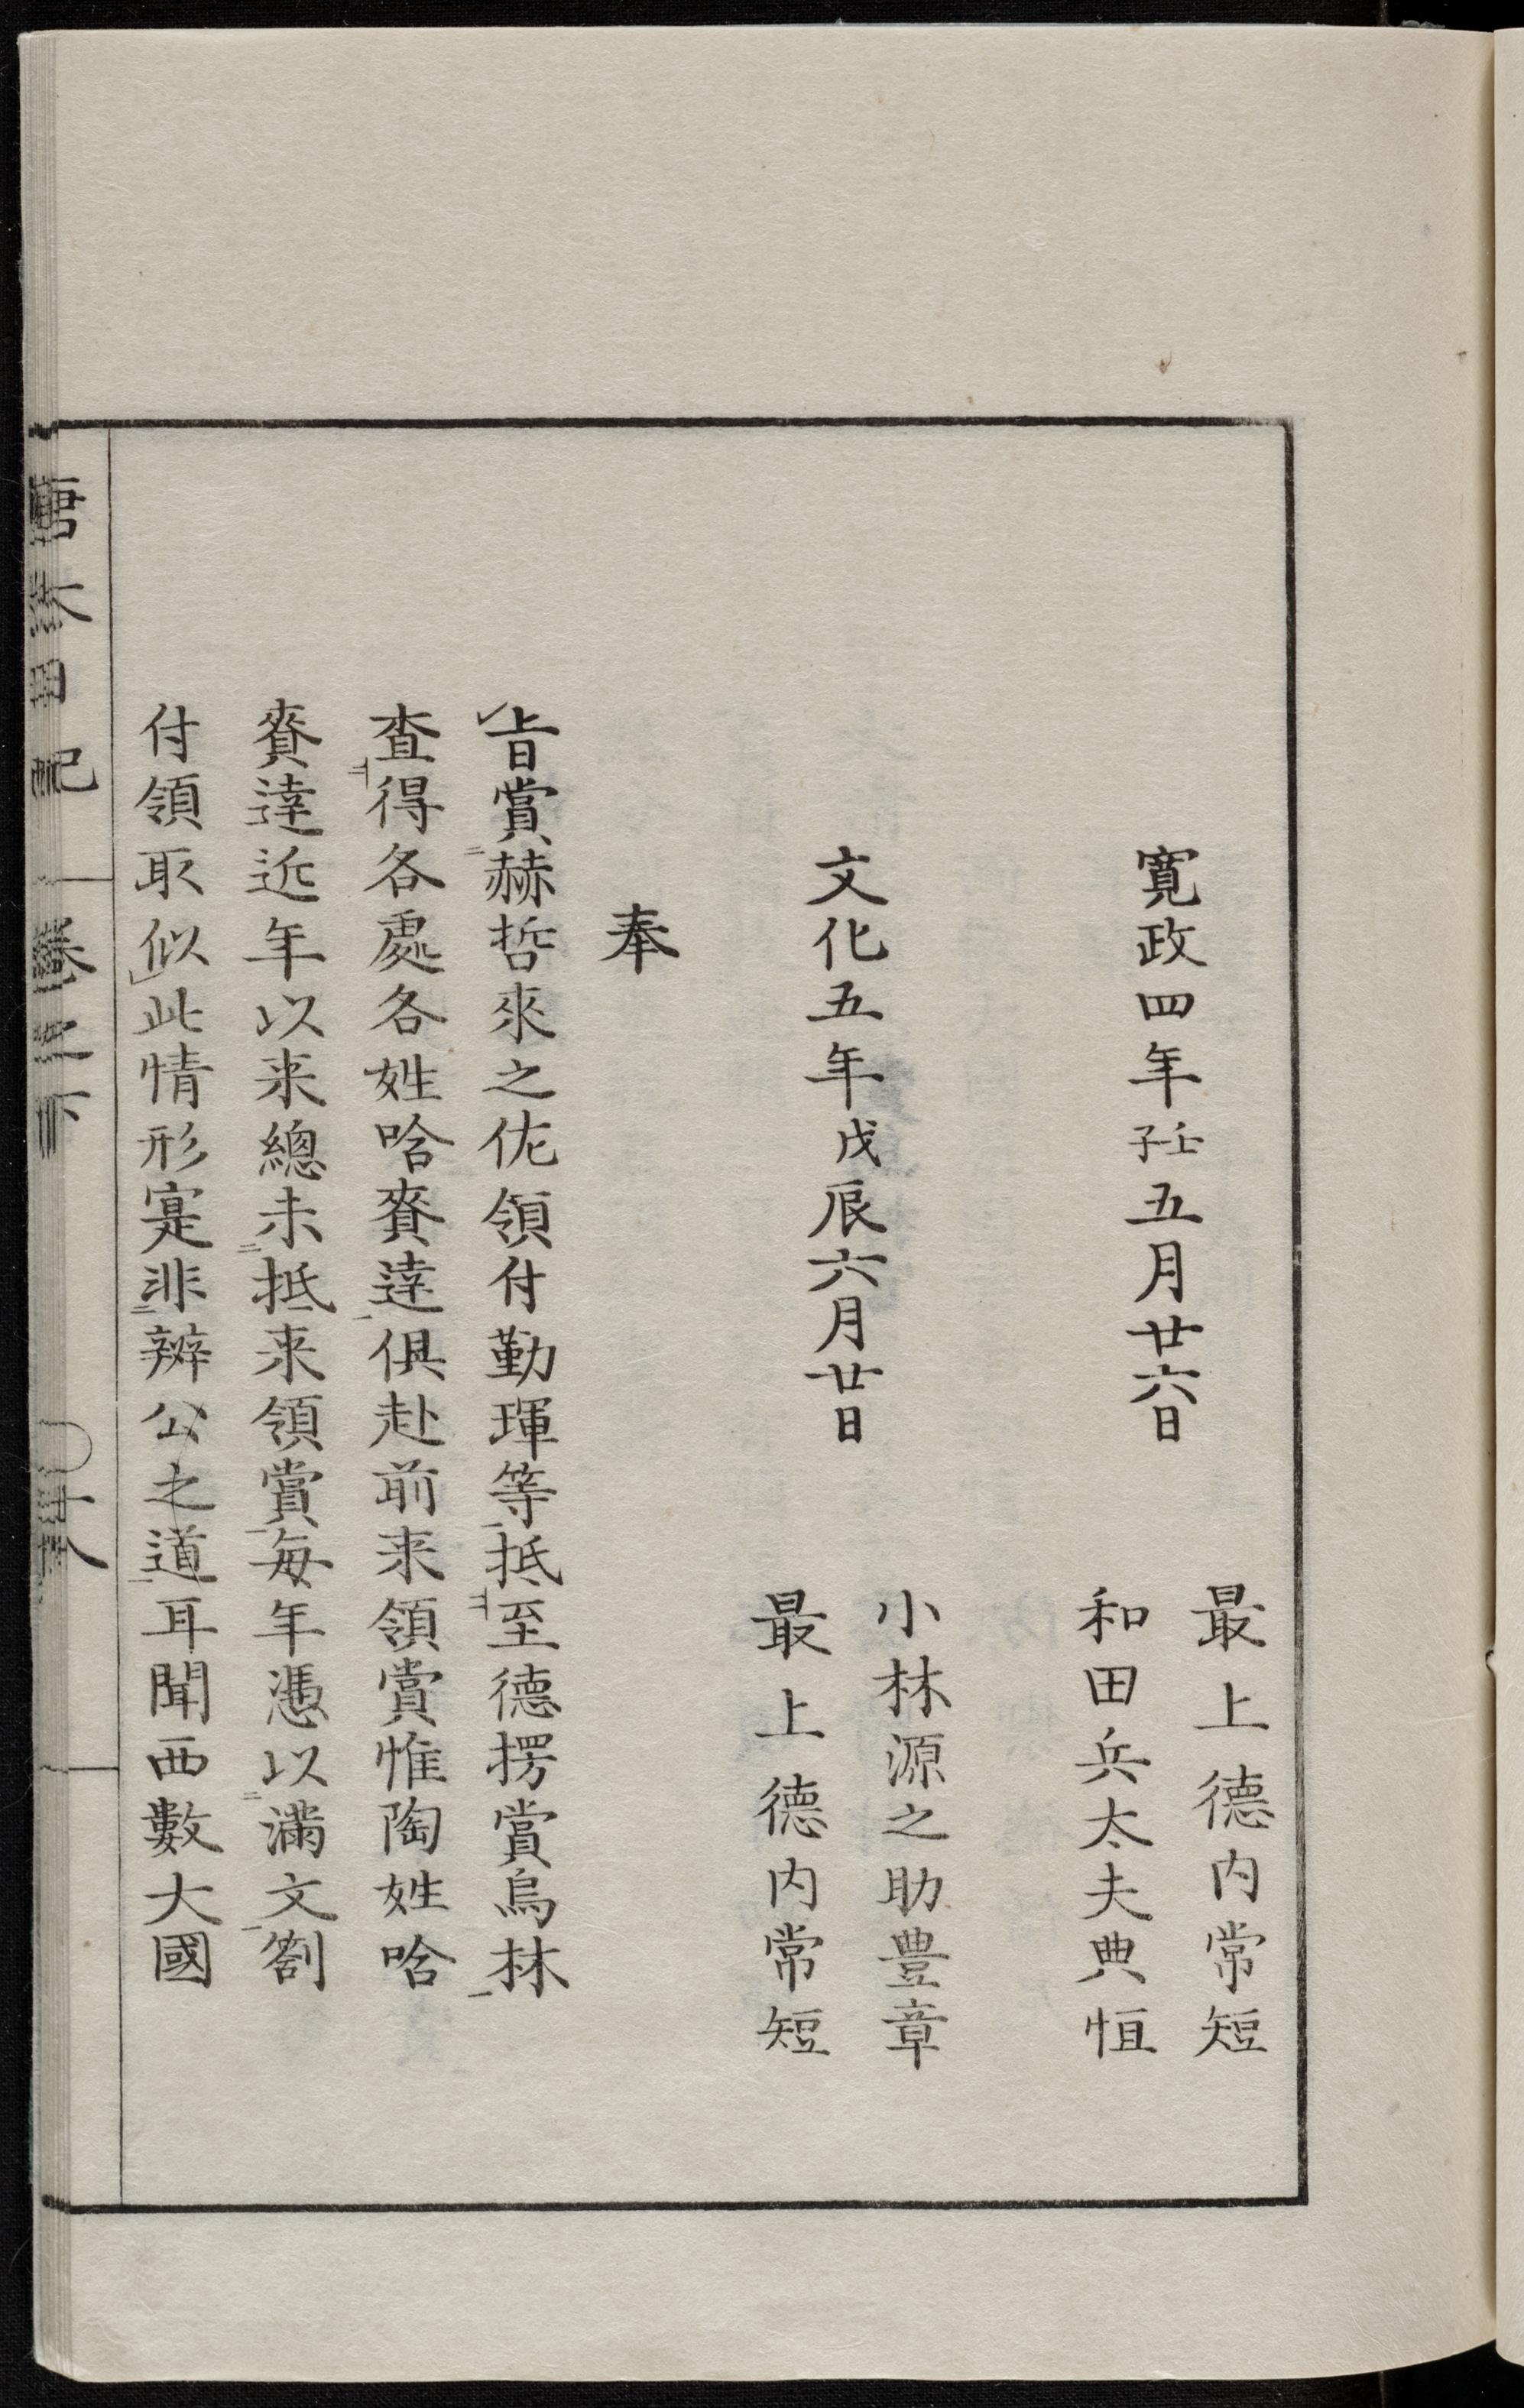 最上德内常短
寛政四年壬子五月廿六日
和田兵太夫典恒
小林源之助豊章
文化五年戊辰六月廿日
最上德内常短
奉
旨賞赫哲來之佐領付勤琿等抵至德楞賞烏林
査得各處各姓哈賚達俱赴前来領賞惟陶姓哈
賚達近年以来總未抵来領賞毎年憑以滿文劄
付領取似此情形寔非辦公之道耳聞西數大國
唐太日記 卷之下 〇十八